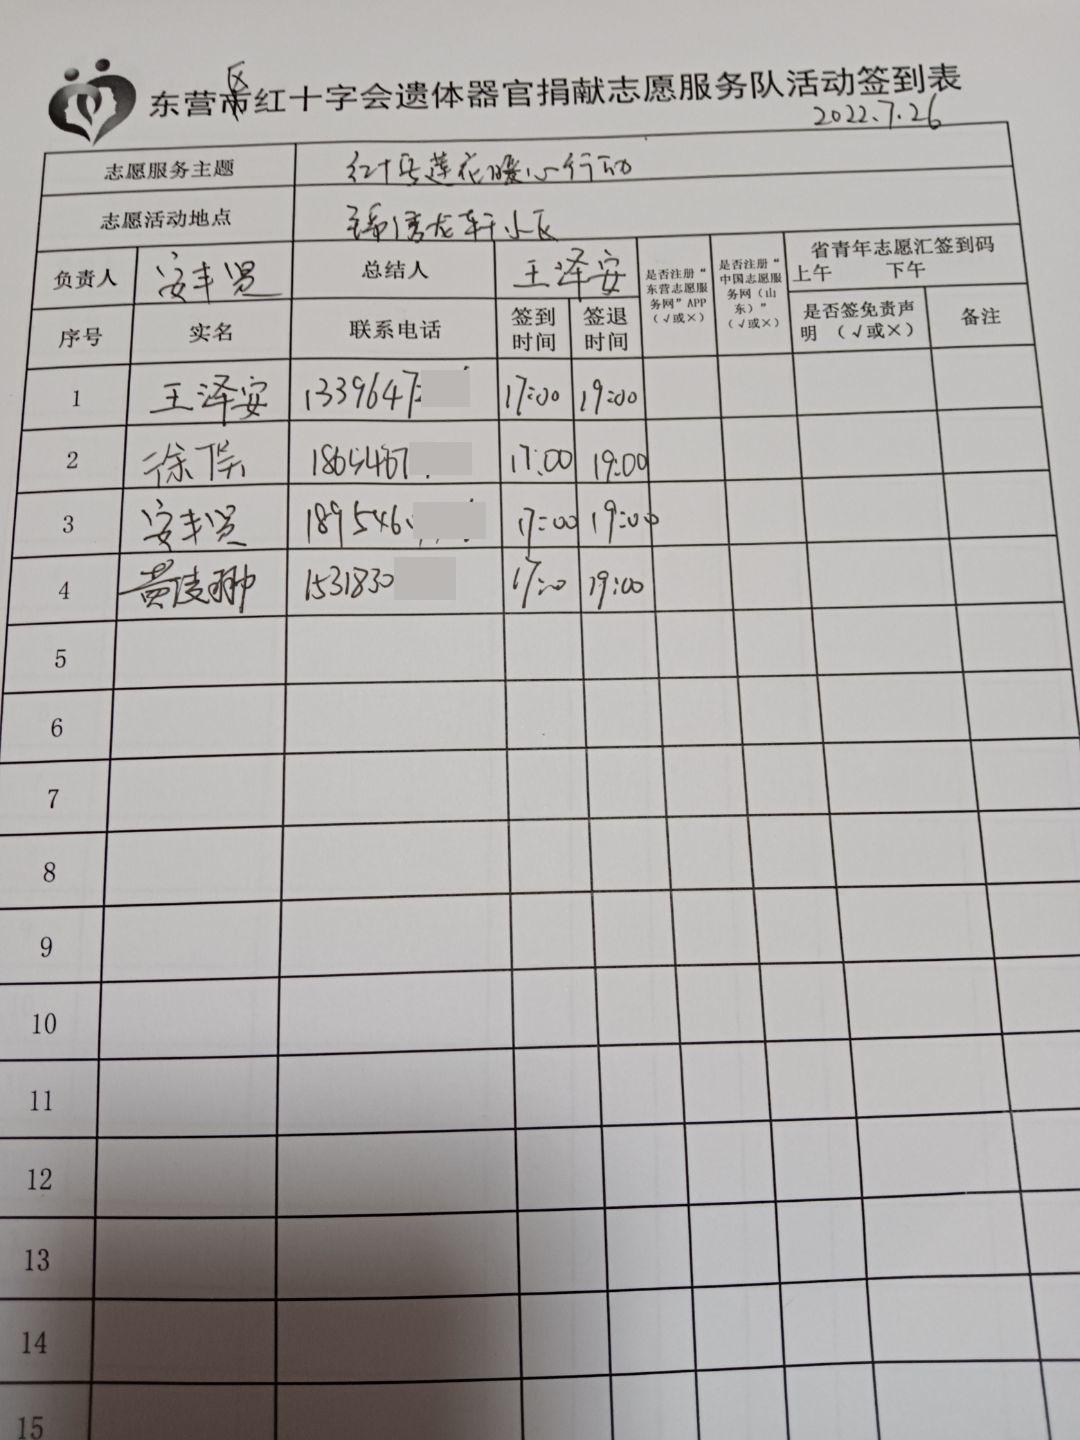 东营区红十字会遗体器官捐献志愿服务队活动签到表
2022.7.26
志愿服务主题 红十字莲花暖心行动
志愿活动地点 锦绣龙轩小区
负责人 安丰贤 总结人 王泽安 是否注册“东营志愿服务网”APP（√或×） 是否注册“中国志愿服务网（山东）”（√或×） 省青年志愿汇签到码 上午 下午
序号 实名 联系电话 签到时间 签退时间 是否签免责声明（√或×） 备注
1 王泽安 1339647 17:00 19:00
2 徐 1865467 17:00 19:00
3 安丰贤 189546 17:00 19:00
4 黄凌翀 1531830 17:00 19:00
5
6
7
8
9
10
11
12
13
14
15